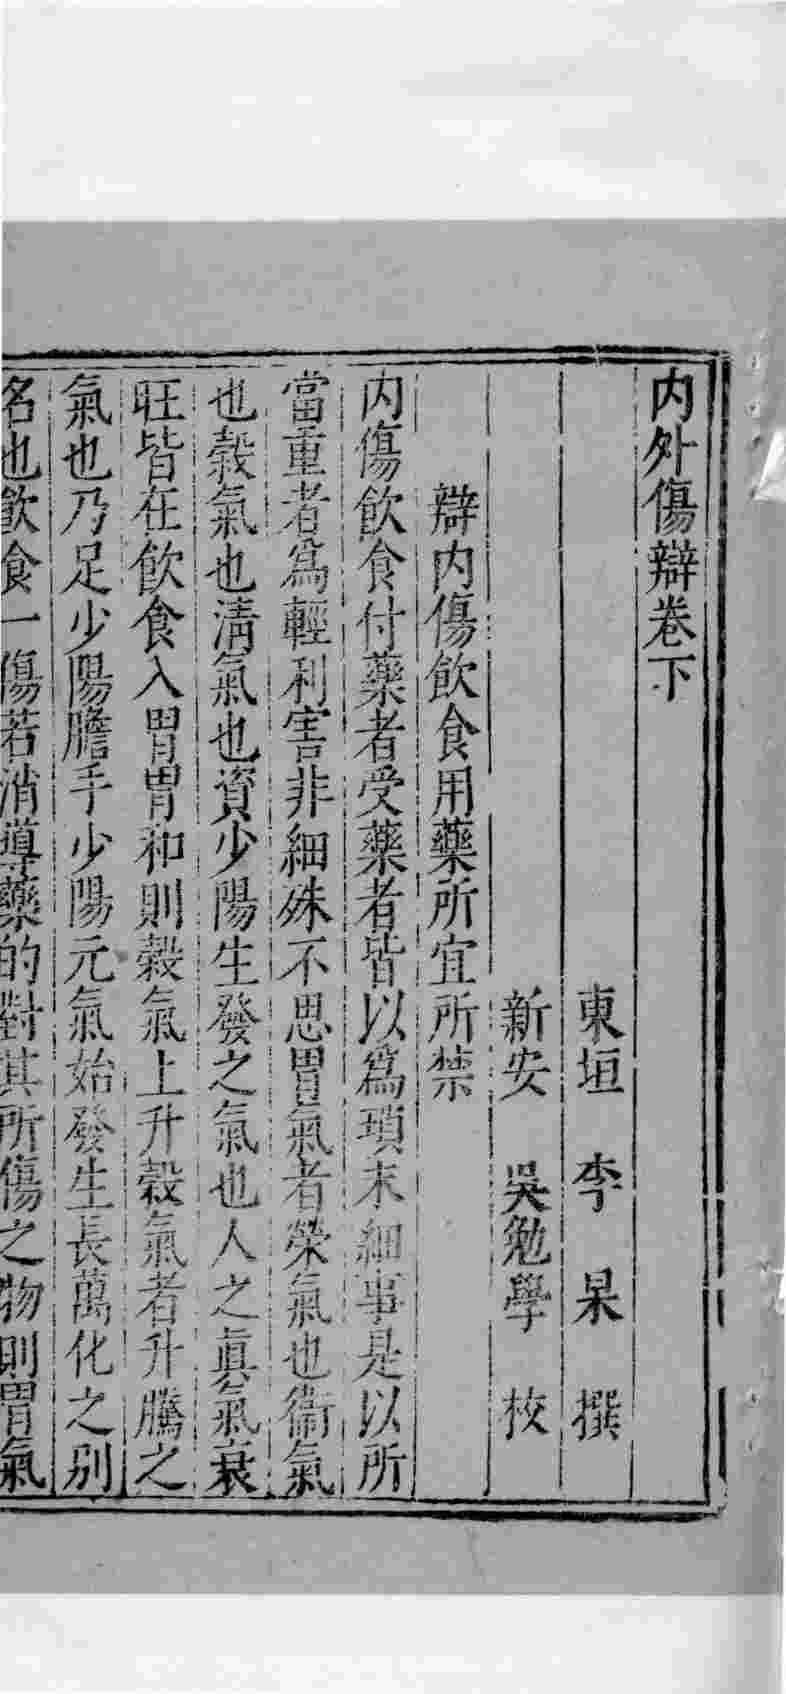 內外傷辯卷下
東垣 李 杲 撰
新安 吳勉學 校
辯內傷飲食用藥所宜所禁
內傷飲食付藥者受藥者皆以爲瑣末細事是以所
當重者爲輕利害非細殊不思胃氣者榮氣也衞氣
也穀氣也淸氣也資少陽生發之氣也人之眞氣衰
旺皆在飲食入胃胃和則穀氣上升穀氣者升騰之
氣也乃足少陽膽手少陽元氣始發生長萬化之别
名也飲食一傷若消導藥的對其所傷之物則胃氣